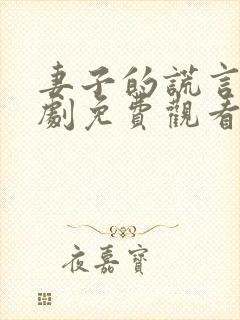 妻子的謊言
劇免費觀看
夜嘉寶